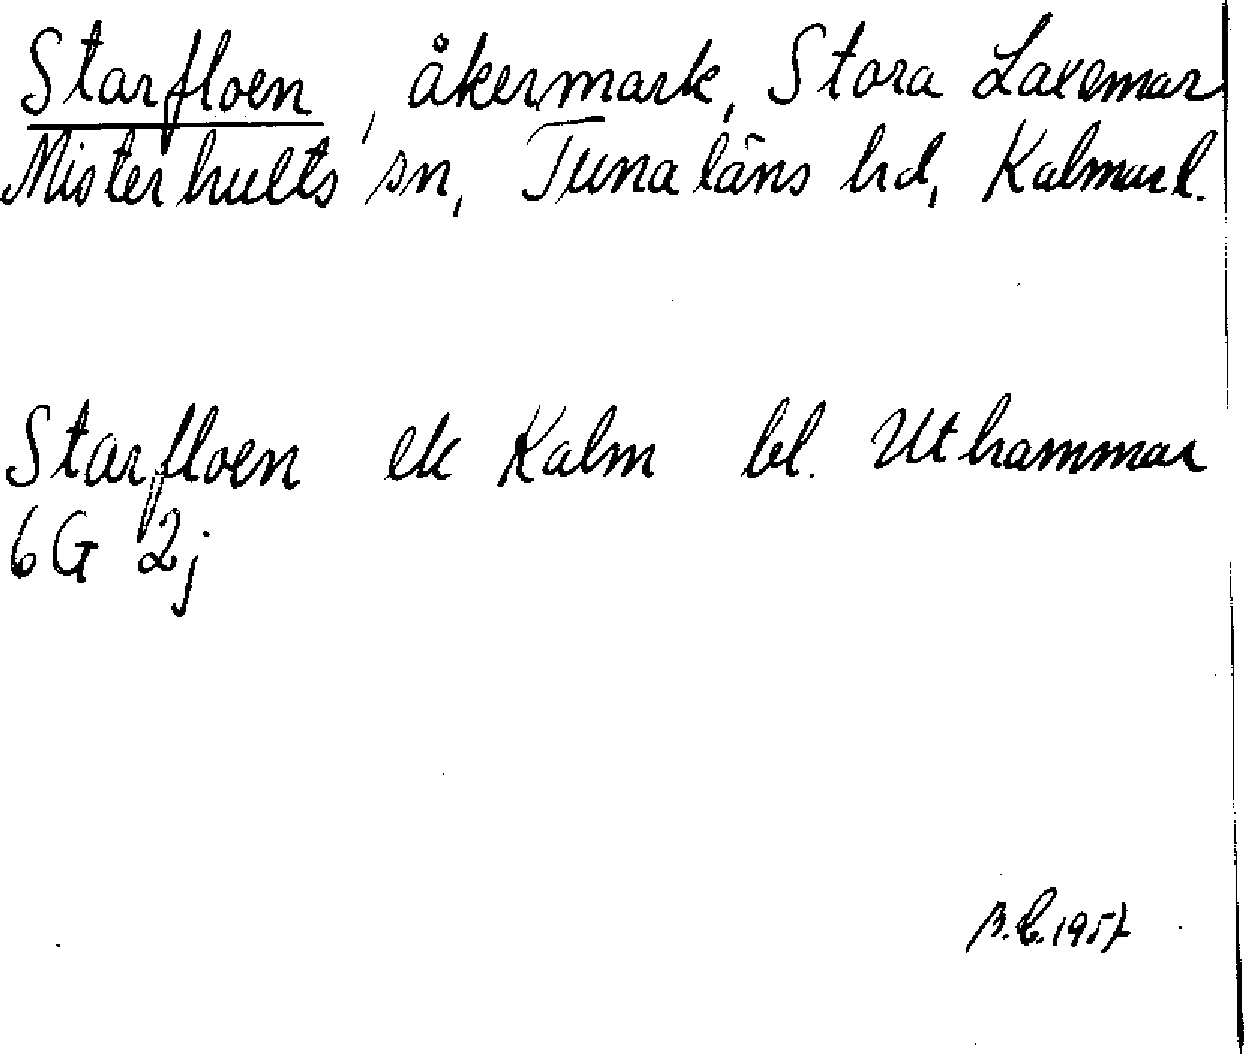 Starfloen, åkermark, Stora Laxemar
Misterhults sn, Tunaläns hd, Kalmar l.
Starfloen ek Kalm bl. Uthammar
6G 2j
1957